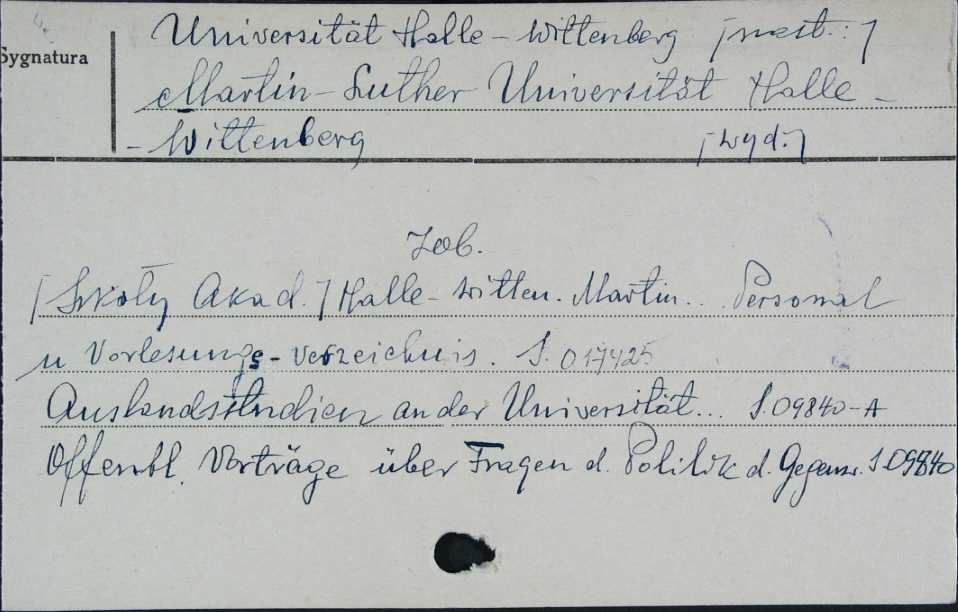 Sygnatura
Universität Halle-Wittenberg [nast.:]
Martin-Luther Universität Halle-
-Wittenberg [wyd.]
Zob.
[Szkoły Akad.] Halle-Witten. Martin.. Personal
u Vorlesungs-Verzeichnis. S.017425
Auslandsstudien an der Universität... S.09840-A
Offentl. Vorträge über Fragen d. Politik d. Gegenw. S.09840